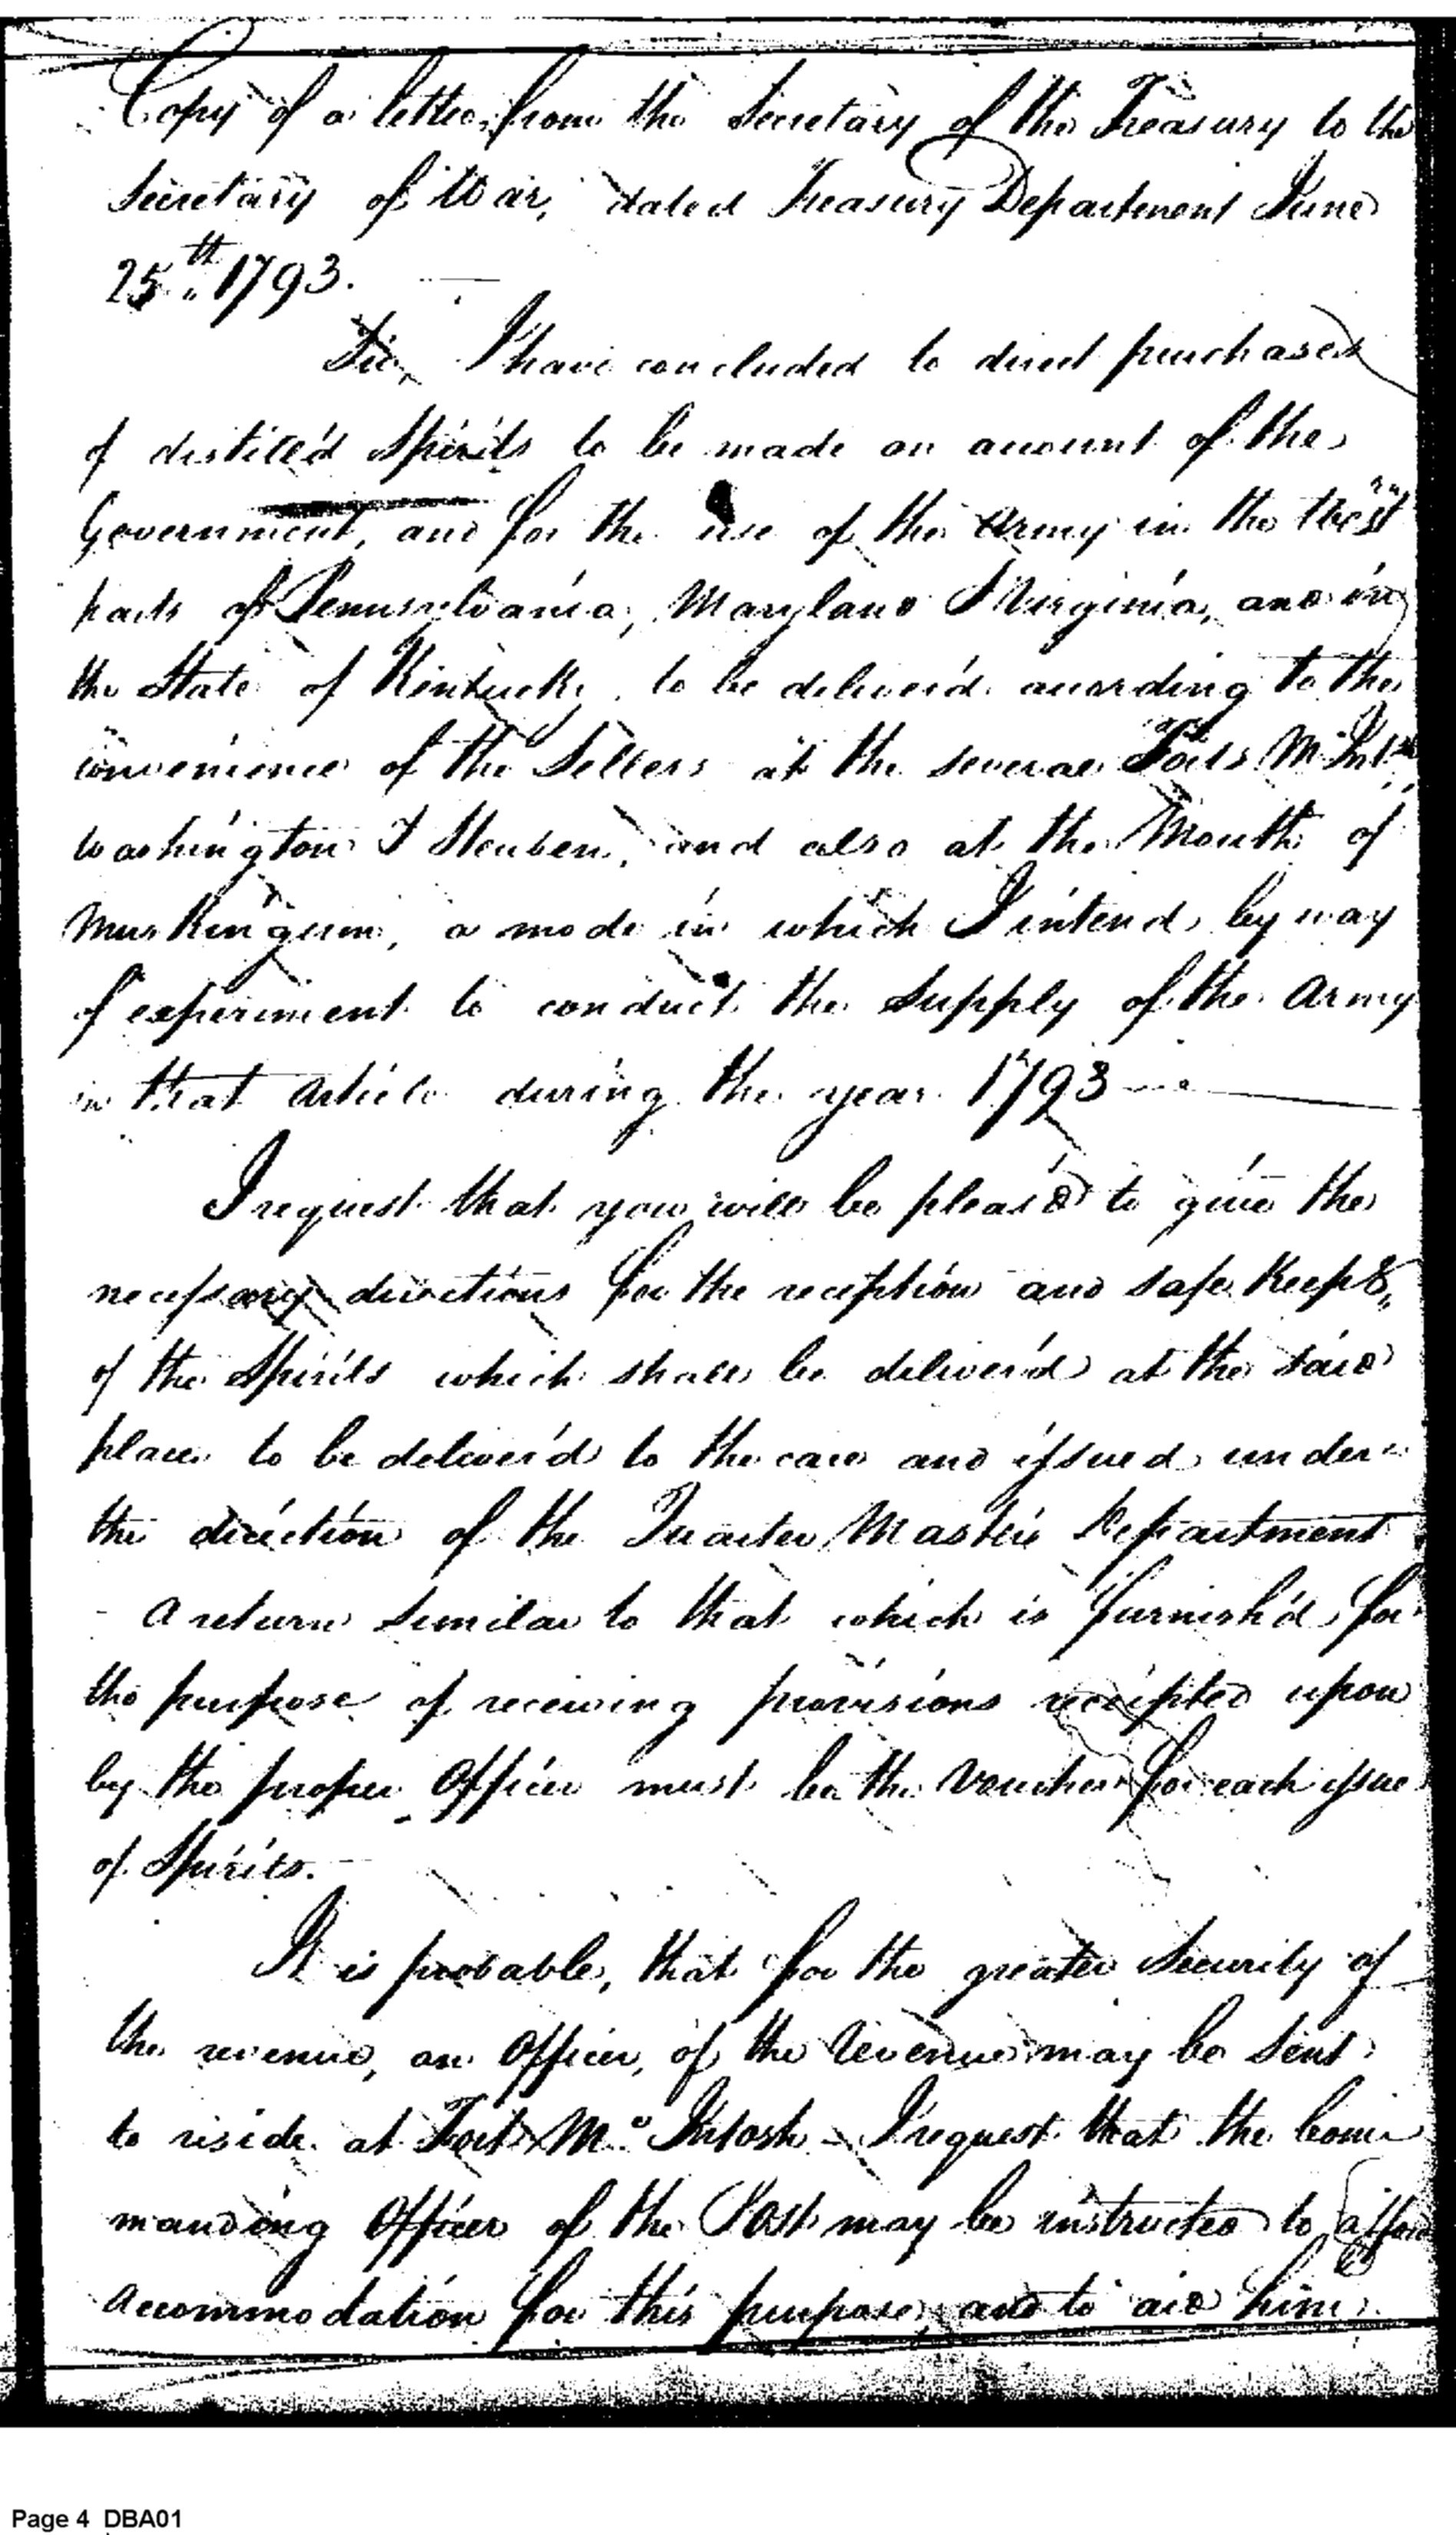 Copy of a letter from the Secretary of the Treasury to the
Secretary of War, dated Treasury Department June
25th 1793.
Sir, I have concluded to direct purchases
of distill'd Spirits to be made on account of the
Government, and for the use of the Army in the West
parts of Pennsylvania, Maryland & Virginia, and in
the State of Kentucky, to be deliver'd according to the
convenience of the Sellers at the several Forts
Washington & Steuben, and also at the Mouth of
Muskingum, a mode in which I intend, by way
of experiment to conduct the Supply of the Army
in that Article during the year 1793
I request that you will be pleas'd to give the
necessary directions for the reception and safe Keepg
of the Spirits which shall be deliver'd at the said
places to be deliver'd to the care and issued under
the direction of the Quarter Master's Department
A return similar to that which is furnish'd for
the purpose of receiving provisions receipted upon
by the proper Officer must be the Voucher for each issue
of Spirits.
It is probable, that for the greater Security of
the revenue, an Officer, of the Revenue may be Sent
to reside at Fort Mc Intosh - I request that the Com-
manding Officer of the Post may be instructed to afford
Accommodation for this purpose, and to aid him
Page 4 DBA01